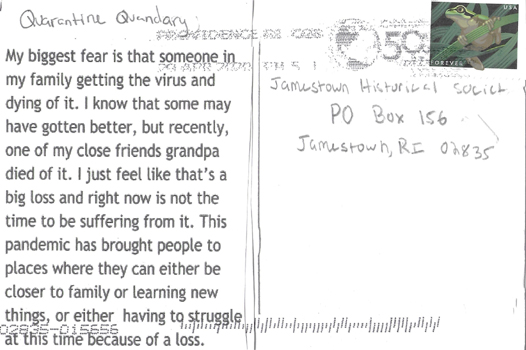 Quarantine Quandary
PROVIDENCE RI 028
29 APR 2020 PM 5 L
USA
FOREVER
My biggest fear is that someone in
my family getting the virus and
dying of it. I know that some may
have gotten better, but recently,
one of my close friends grandpa
died of it. I just feel like that's a
big loss and right now is not the
time to be suffering from it. This
pandemic has brought people to
places where they can either be
closer to family or learning new
things, or either having to struggle
at this time because of a loss.
Jamestown Historical Societ
PO Box 156
Jamestown, RI 02835
02835-015656